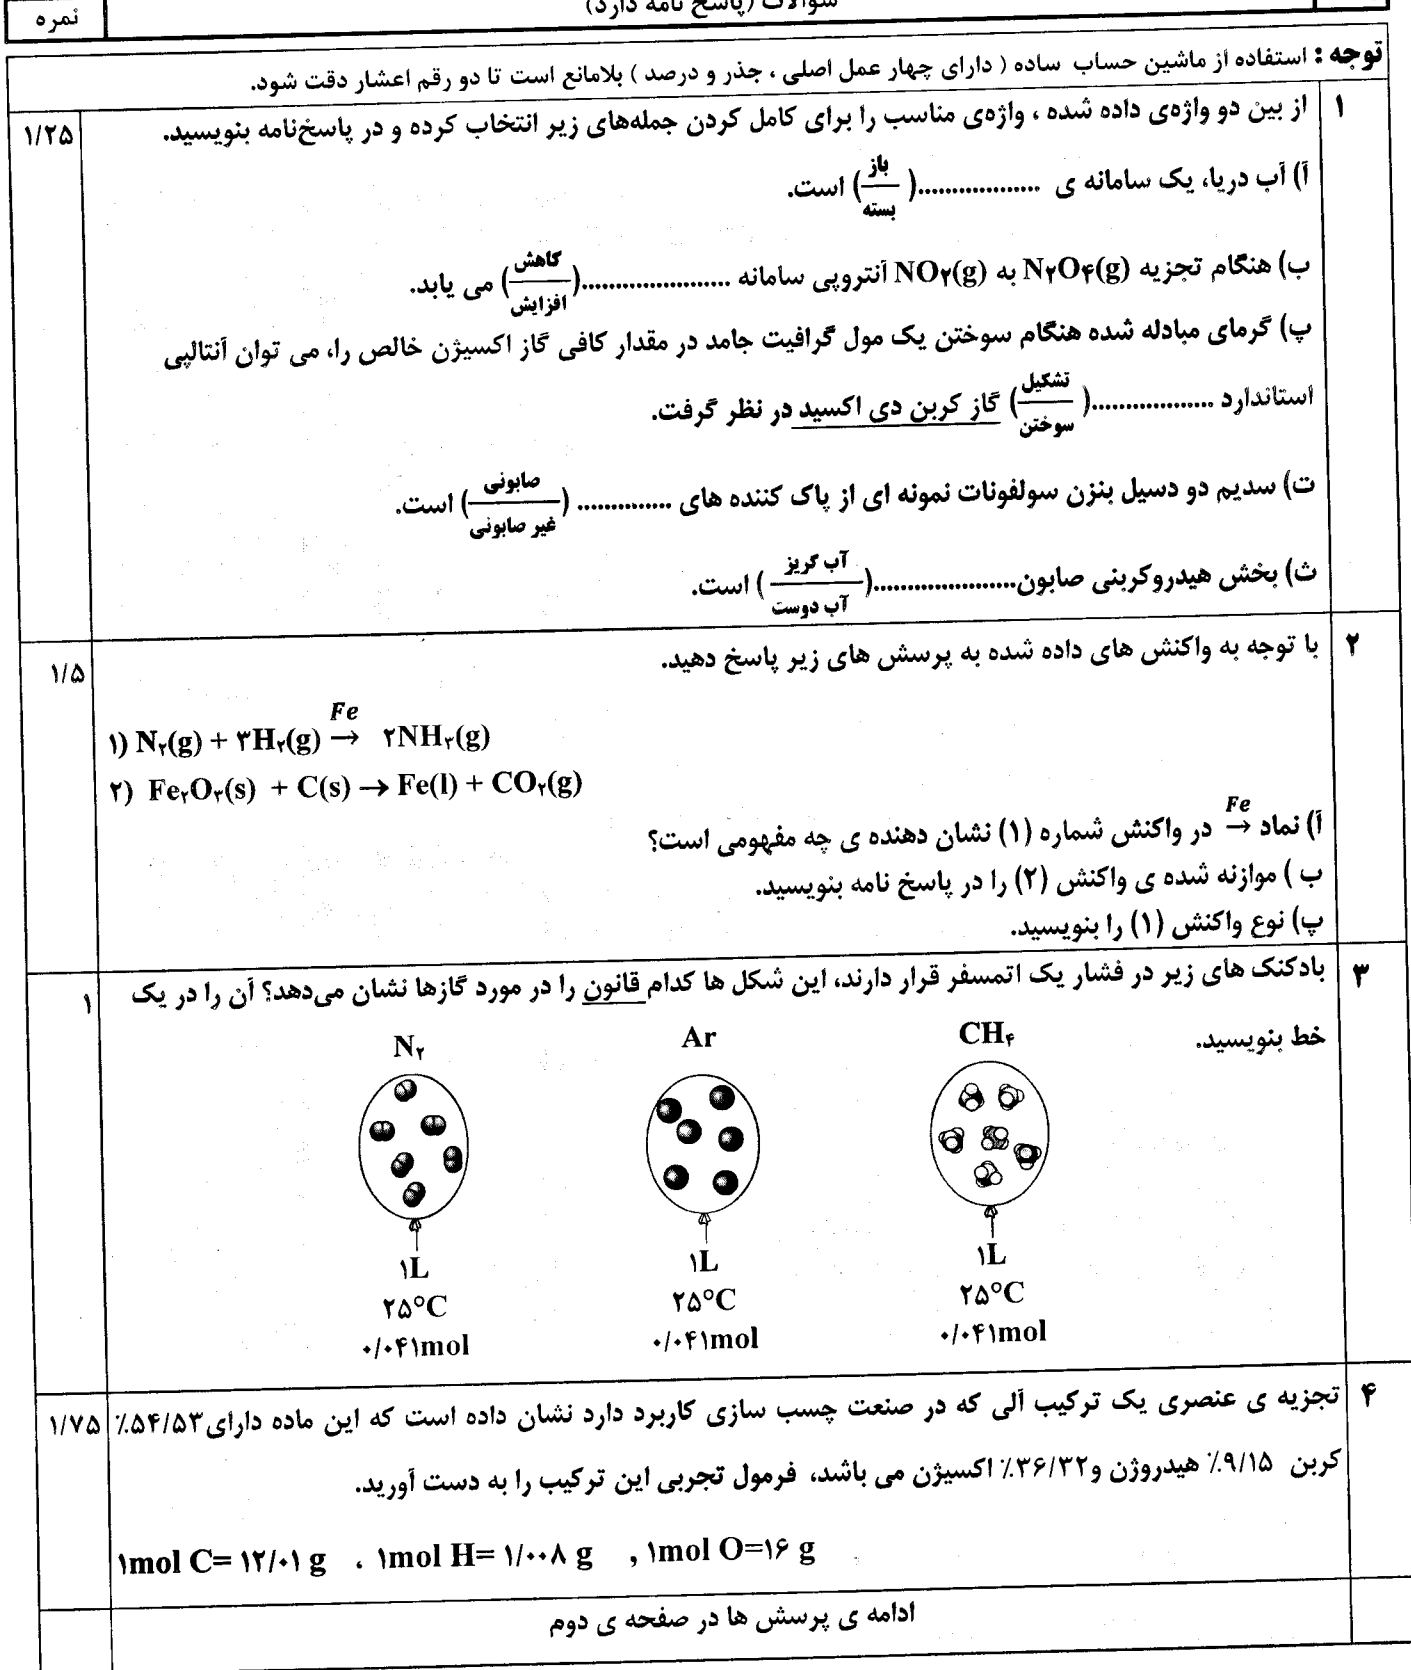 نمره
سوالات (پاسخ نامه دارد)
توجه : استفاده از ماشین حساب ساده ( دارای چهار عمل اصلی ، جذر و درصد ) بلامانع است تا دو رقم اعشار دقت شود.
۱ از بین دو واژه‌ی داده شده ، واژه‌ی مناسب را برای کامل کردن جمله‌های زیر انتخاب کرده و در پاسخ‌نامه بنویسید. ۱/۲۵
آ) آب دریا، یک سامانه ی ..................( باز / بسته ) است.
ب) هنگام تجزیه N۲O۴(g) به NO۲(g) آنتروپی سامانه ......................( کاهش / افزایش ) می یابد.
پ) گرمای مبادله شده هنگام سوختن یک مول گرافیت جامد در مقدار کافی گاز اکسیژن خالص را، می توان آنتالپی
استاندارد ..................( تشکیل / سوختن ) گاز کربن دی اکسید در نظر گرفت.
ت) سدیم دو دسیل بنزن سولفونات نمونه ای از پاک کننده های .............. ( صابونی / غیر صابونی ) است.
ث) بخش هیدروکربنی صابون.....................( آب گریز / آب دوست ) است.
۲ با توجه به واکنش های داده شده به پرسش های زیر پاسخ دهید. ۱/۵
Fe
۱) N۲(g) + ۳H۲(g) → ۲NH۳(g)
۲) Fe۲O۳(s) + C(s) → Fe(l) + CO۲(g)
آ) نماد Fe → در واکنش شماره (۱) نشان دهنده ی چه مفهومی است؟
ب ) موازنه شده ی واکنش (۲) را در پاسخ نامه بنویسید.
پ) نوع واکنش (۱) را بنویسید.
۳ بادکنک های زیر در فشار یک اتمسفر قرار دارند، این شکل ها کدام قانون را در مورد گازها نشان می‌دهد؟ آن را در یک ۱
خط بنویسید.
N۲ Ar CH۴
۱L ۱L ۱L
۲۵°C ۲۵°C ۲۵°C
۰/۰۴۱mol ۰/۰۴۱mol ۰/۰۴۱mol
۴ تجزیه ی عنصری یک ترکیب آلی که در صنعت چسب سازی کاربرد دارد نشان داده است که این ماده دارای ۵۴/۵۳٪ ۱/۷۵
کربن ۹/۱۵٪ هیدروژن و۳۶/۳۲٪ اکسیژن می باشد، فرمول تجربی این ترکیب را به دست آورید.
۱mol C= ۱۲/۰۱ g , ۱mol H= ۱/۰۰۸ g , ۱mol O=۱۶ g
ادامه ی پرسش ها در صفحه ی دوم